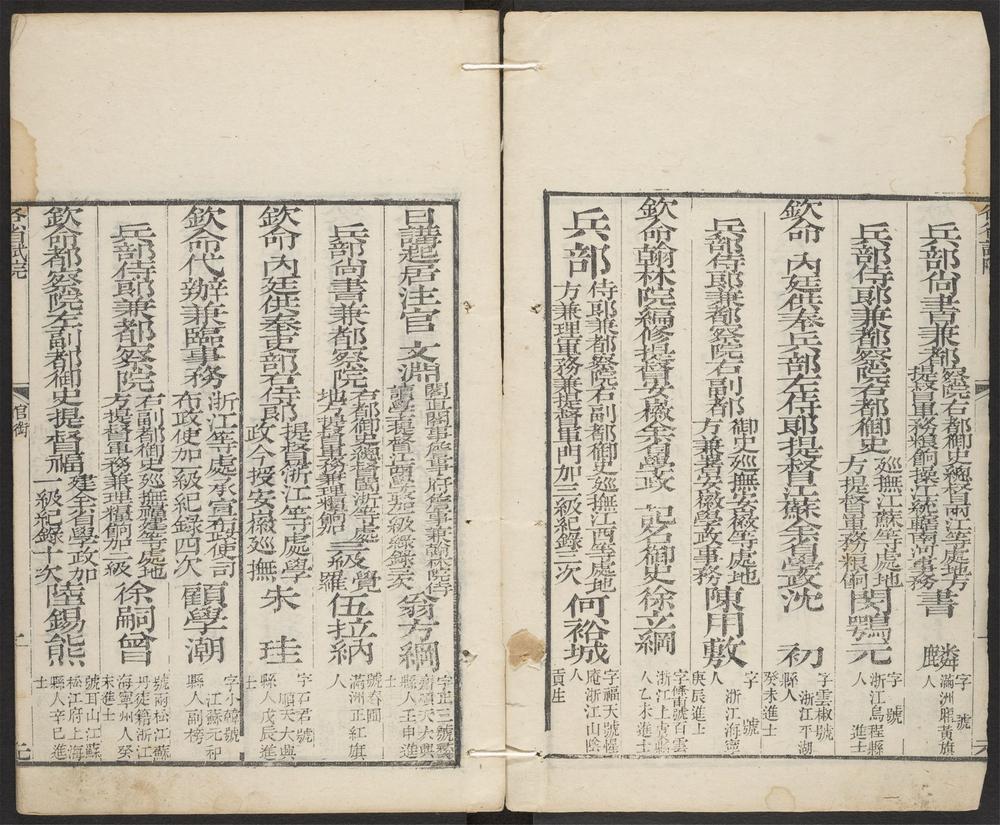 兵部尚書兼都察院右都御史總督兩江等處地方提督軍務糧餉操江統轄南河事務書 麟 字 號 滿洲鑲黃旗人
兵部侍郎兼都察院右副都御史巡撫江蘇等處地方提督軍務糧餉閔鶚元 字 號 浙江烏程縣 進士
欽命 內廷供奉兵部左侍郎提督江蘇全省學政沈 初 字雲椒號 浙江平湖縣人癸未進士
兵部侍郎兼都察院右副都御史巡撫安徽等處地方兼署安徽學政事務陳用敷 字 號 浙江海寧人庚辰進士
欽命翰林院編修提督安徽全省學政 記名御史徐立綱 字 號百雲浙江上虞縣人乙未進士
兵部侍郎兼都察院右副都御史巡撫江西等處地方兼理軍務兼提督軍門加三級紀錄二次何裕城 字福天號惺庵浙江山陰人貢生
日講起居注官 文淵閣直閣事詹事府詹事兼翰林院侍讀學士提督江西學政加級紀錄 次翁方綱 字正三號 順天大興縣人壬申進士
兵部尚書兼都察院右都御史總督閩浙等處地方提督軍務兼理糧餉 三級覺羅伍拉納 號春圃滿洲正紅旗人
欽命 內廷供奉吏部右侍郎提督浙江等處學政今授安徽巡撫朱 珪 字石君號 順天大興縣人戊辰進士
欽命代辦兼臨事務浙江等處承宣布政使司布政使加一級紀錄四次顧學潮 字小韓號 江蘇元和縣人副榜
兵部侍郎兼都察院右副都御史巡撫福建等處地方提督軍務兼理糧餉加二級徐嗣曾 號兩松江蘇丹徒籍浙江海寧州人癸未進士
欽命都察院左副都御史提督福建全省學政加一級紀錄十次陸錫熊 號耳山江蘇松江府上海縣人辛巳進士
各省試院
官銜